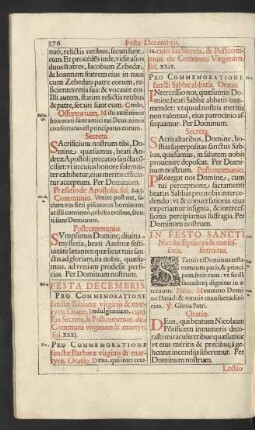 576
Festa Decembris.
nuò, relictis retibus, secuti sunt
eum. Et procedés inde, vidit alios
duos fratres, Iacobum Zebedæi,
& Ioannem fratrem eius in naui
cum Zebedæo patre eorum, re-
ficientes retia sua: & vocauit eos.
Illi autem, statim relictis retibus
& patre, secuti sunt eum. Credo.
Offertorium. Mihi autem nimis
honorati sunt amici tui Deus: nimis
confortatus est principatus eorum.
Secreta.
SAcrificium nostrum tibi, Do-
mine, quæsumus, beati
Andreæ Apostoli precatio sancta
Per Dominum.
Præfatio de Apostolis, fol. 245
Communio. Venite post me, fa-
ciam vos fieri piscatores hominum:
at illi continuò, relictis retibus, secu-
ti sunt Dominum.
Postcommunio.
SVmpsimus Domine, diuina
mysteria, beati Andreæ festi-
uitate lætantes: quæ sicut tuis san-
ctis ad gloriam, ita nobis, quæsu-
mus, ad veniam prodesse perfi-
cias. Per Dominum nostrum.
FESTA DECEMBRIS.
PRO COMMEMORATIONE
sanctæ Bibianæ virginis & mar-
tyris. Oratio, Indulgentiam. cum
sua Secreta, & Postcommun. de
Communi virginum & martyrū,
fol. xxxj.
PRO COMMEMORATIONE
sanctæ Barbaræ virginis & mar-
tyris. Oratio. Deus, qui inter cete-
ra. cum sua Secreta, & Postcommun.
de Communi Virginum & martyrū
fol. xxix.
PRO COMMEMORATIONE
sancti Sabbæ abbatis. Oratio.
INtercessio nos, quæsumus Do-
mine, beati Sabbæ abbatis com-
mendet: vt quod nostris meritis
non valemus, eius patrocinio as-
sequamur. Per Dominum.
Secreta.
SAcris altaribus, Domine, ho-
stias superpositas sanctus Sab-
bas, quæsumus, in salutem nobis
prouenire deposcat. Per Domi-
num nostrum. Postcommunio.
PRotegat nos Domine, cum
tui perceptione sacramenti
beatus Sabbas abbas, pro nobis
intercedendo: vt & conuersatio-
nis eius experiamur insignia, & inter-
cessionis percipiamus suffragia. Per
Dominum nostrum.
IN FESTO SANCTI
Nicolai Episcopi & confes-
soris. Introitus.
STatuit ei Dominus testa-
mentum pacis, & princi-
pem fecit eum: vt sit illi
sacerdotij dignitas in æ-
ternum. Psalm. Memento Domi-
ne Dauid: & omnis mansuetudinis
eius. ℣. Gloria Patri.
Oratio.
DEus, qui beatum Nicolaum
Pōtificem innumeris deco-
rasti miraculis: tribue quæsumus;
vt eius meritis & precibus, à ge-
hennæ incendijs liberemur. Per
Dominum nostrum.
Lectio